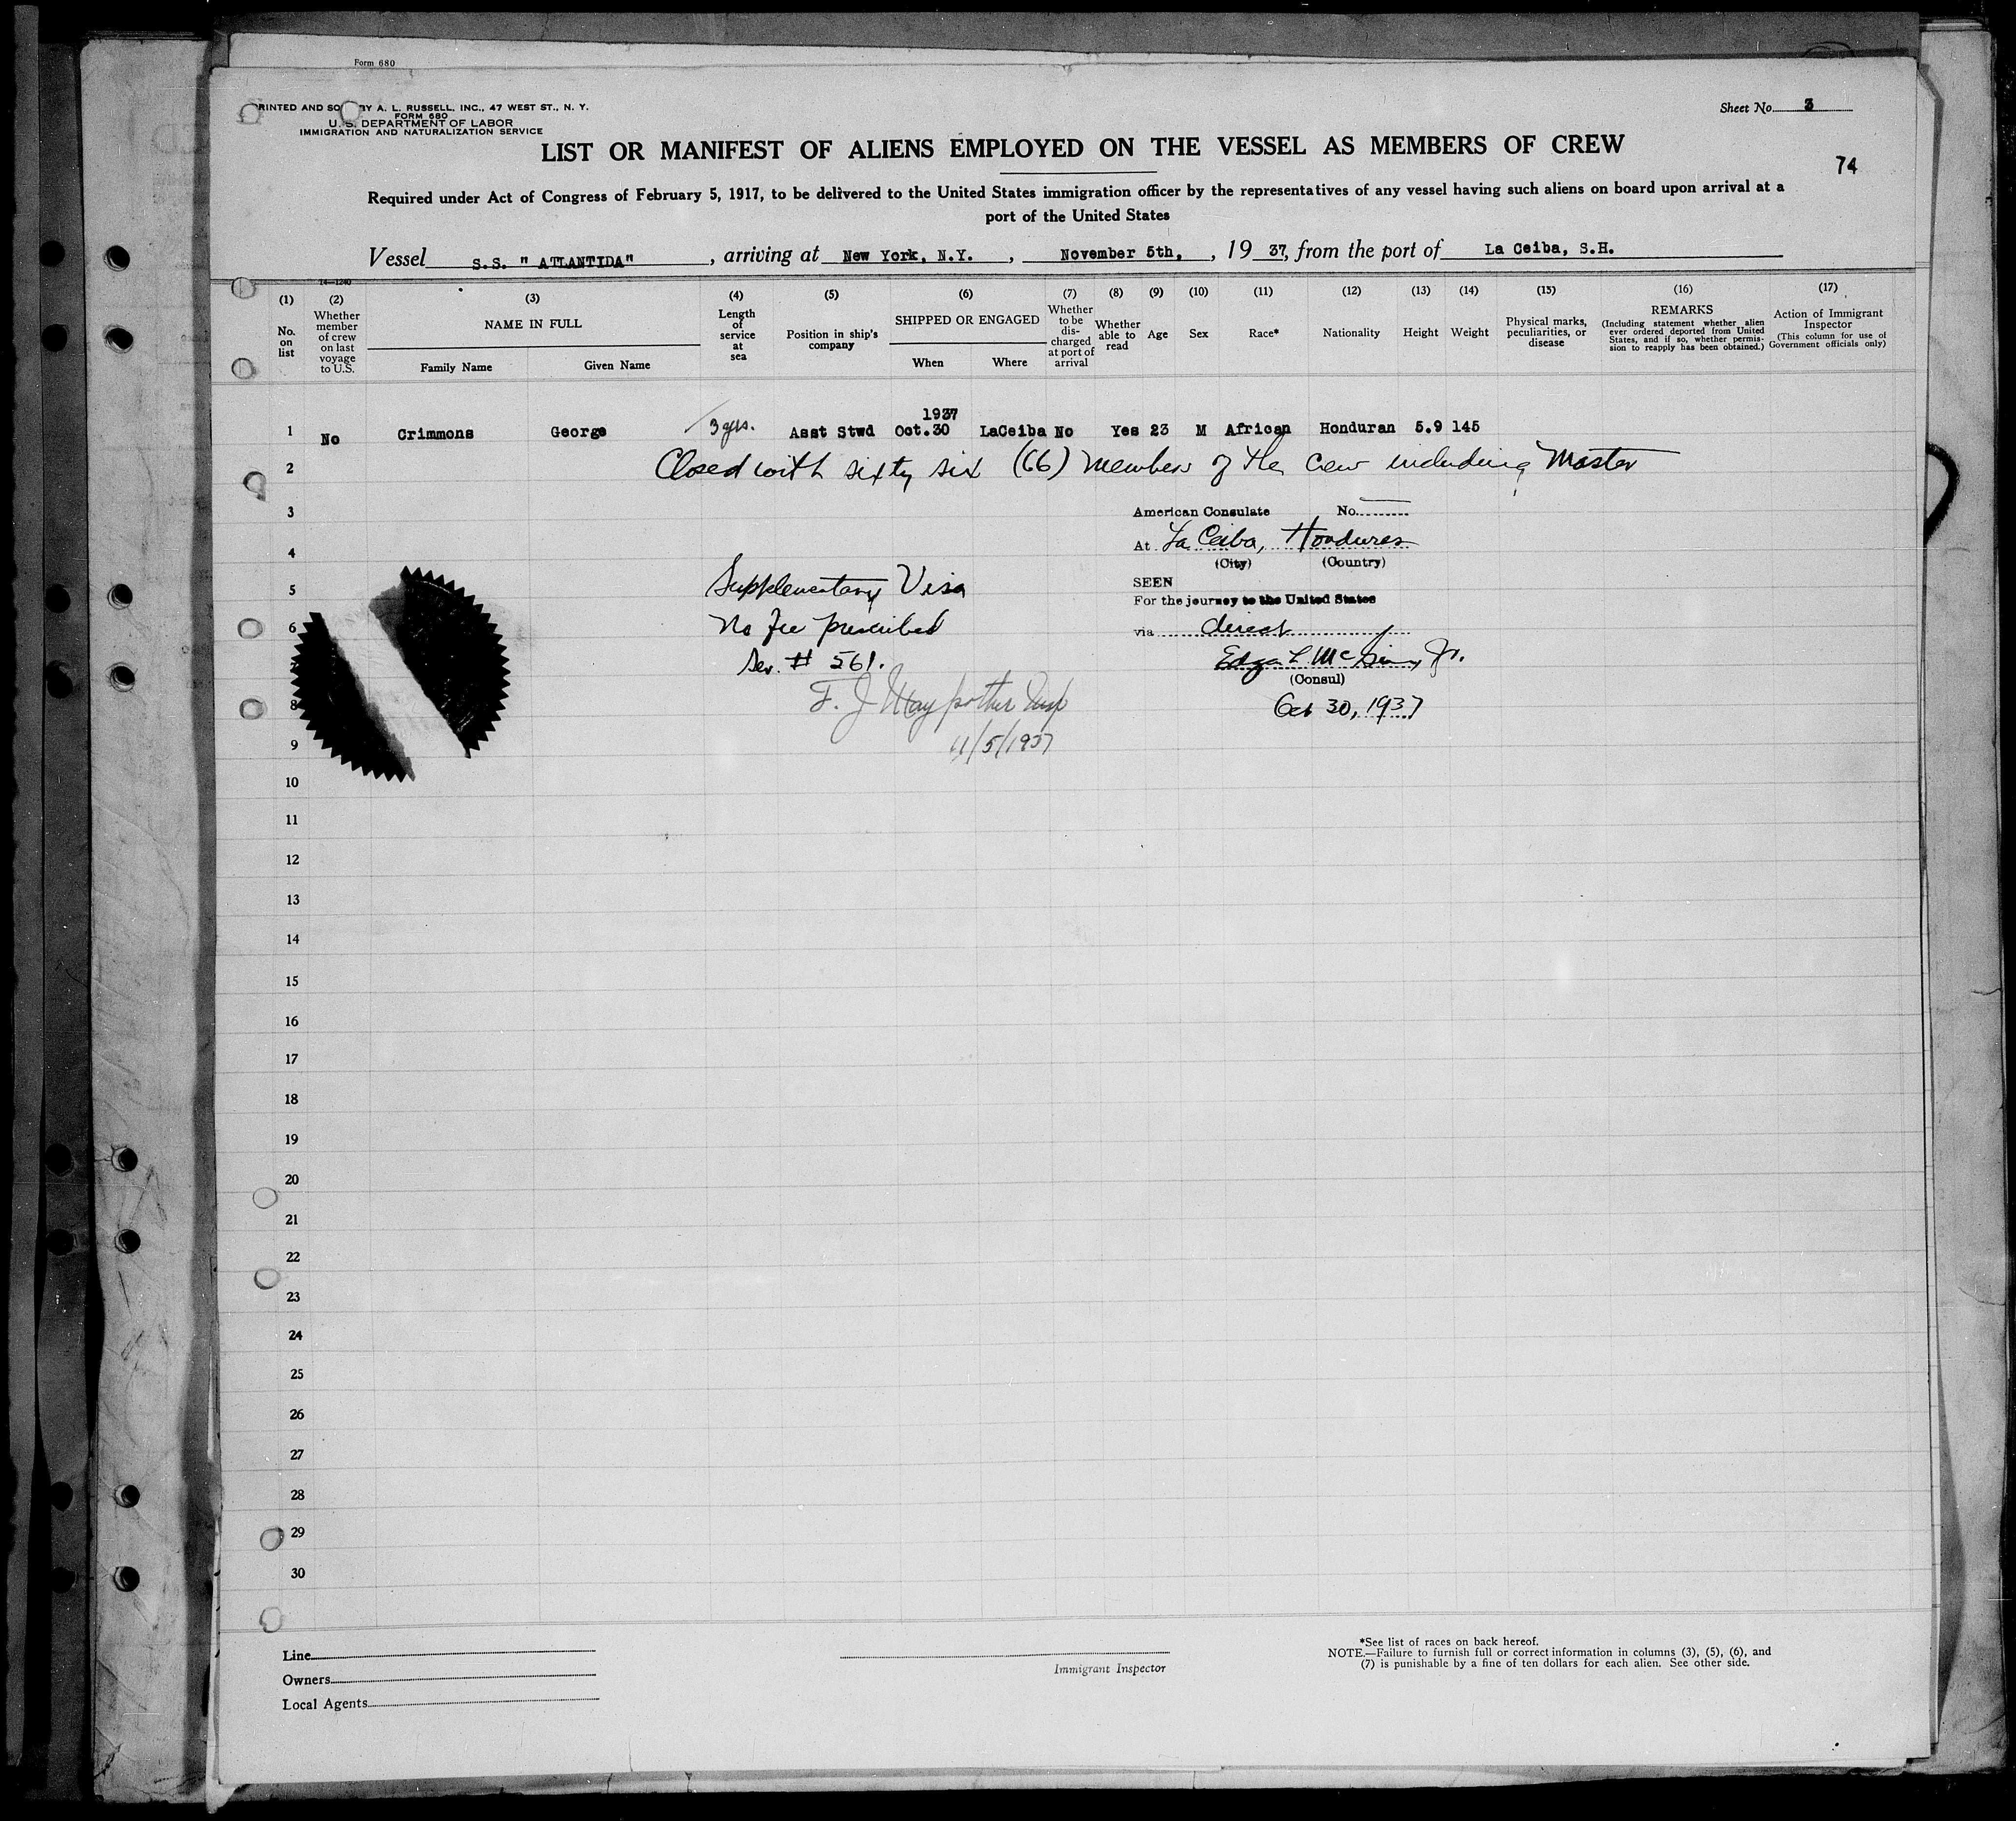 Form 680
PRINTED AND SO BY A. L. RUSSELL, INC., 47 WEST ST., N. Y.
FORM 680
U. S. DEPARTMENT OF LABOR
IMMIGRATION AND NATURALIZATION SERVICE
Sheet No. 3
LIST OR MANIFEST OF ALIENS EMPLOYED ON THE VESSEL AS MEMBERS OF CREW
74
Required under Act of Congress of February 5, 1917, to be delivered to the United States immigration officer by the representatives of any vessel having such aliens on board upon arrival at a
port of the United States
Vessel S.S. " ATLANTIDA" , arriving at New York, N.Y. , November 5th, , 19 37, from the port of La Ceiba, S.H.
14—1240
(1) No. on list
(2) Whether member of crew on last voyage to U.S.
(3) NAME IN FULL
Family Name Given Name
(4) Length of service at sea
(5) Position in ship's company
(6) SHIPPED OR ENGAGED
When Where
(7) Whether to be discharged at port of arrival
(8) Whether able to read
(9) Age
(10) Sex
(11) Race*
(12) Nationality
(13) Height
(14) Weight
(15) Physical marks, peculiarities, or disease
(16) REMARKS
(Including statement whether alien ever ordered deported from United States, and if so, whether permission to reapply has been obtained.)
(17) Action of Immigrant Inspector
(This column for use of Government officials only)
1937
1 No Crimmons George 3 yrs. Asst Stwd Oct.30 LaCeiba No Yes 23 M African Honduran 5.9 145
2 Closed with sixty six (66) members of the crew including Master
3 American Consulate No.
4 At La Ceiba, Honduras
(City) (Country)
SEEN
5 Supplementary Visa
For the journey to the United States
6 No fee prescribed
via direct
7 Ser. # 561.
Edgar L Mc Jr.
(Consul)
8 F. J. Insp
Oct 30, 1937
9 11/5/1937
10
11
12
13
14
15
16
17
18
19
20
21
22
23
24
25
26
27
28
29
30
Line
Owners
Local Agents
Immigrant Inspector
*See list of races on back hereof.
NOTE.—Failure to furnish full or correct information in columns (3), (5), (6), and
(7) is punishable by a fine of ten dollars for each alien. See other side.